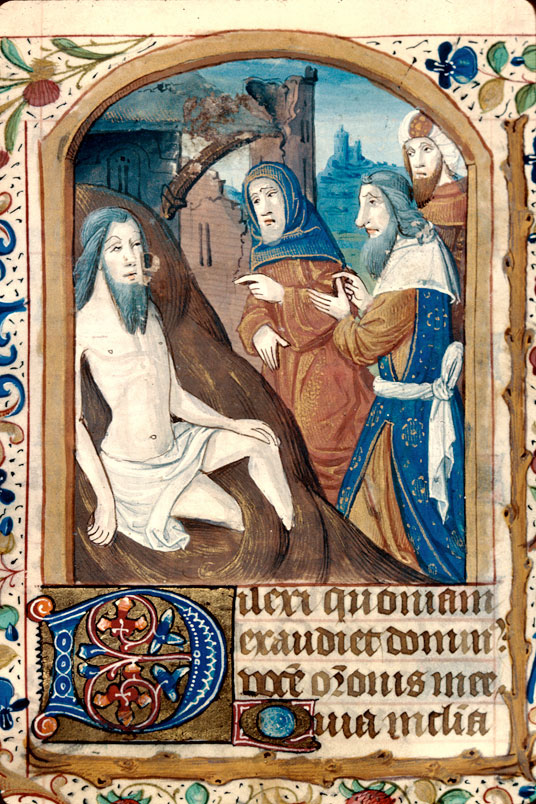 Dilexi quoniam
exaudiet domin⁹
vocē or̄onis mee.
Quia inclīa